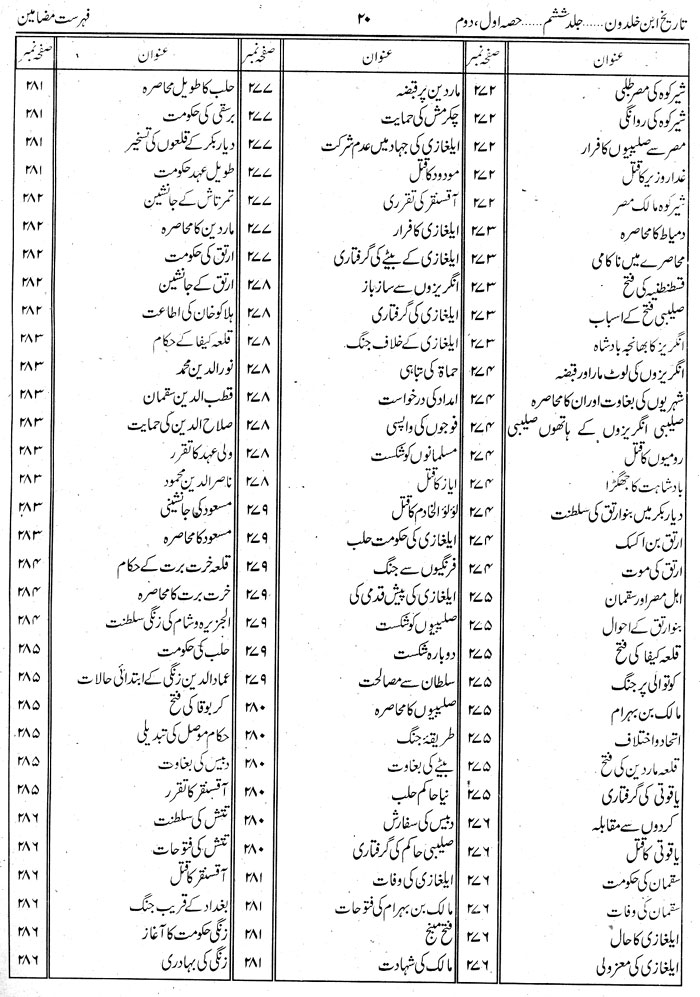 تاریخ ابن خلدون ...... جلد ششم ...... حصہ اول، دوم
۲۰
فہرست مضامین
عنوان صفحہ نمبر
شیرکوہ کی مصر طلبی ۲۷۲
شیرکوہ کی روانگی ۲۷۲
مصر سے صلیبیوں کا فرار ۲۷۲
غدار وزیر کا قتل ۲۷۲
شیرکوہ مالک مصر ۲۷۲
دمیاط کا محاصرہ ۲۷۳
محاصرے میں ناکامی ۲۷۳
قسطنطنیہ کی فتح ۲۷۳
صلیبی فتح کے اسباب ۲۷۳
انگریز کا بھانجہ بادشاہ ۲۷۳
انگریزوں کی لوٹ مار اور قبضہ ۲۷۴
شہریوں کی بغاوت اور ان کا محاصرہ ۲۷۴
صلیبی انگریزوں کے ہاتھوں صلیبی ۲۷۴
رومیوں کا قتل ۲۷۴
بادشاہت کا جھگڑا ۲۷۴
دیاربکر میں بنو ارتق کی سلطنت ۲۷۴
ارتق بن اکسک ۲۷۴
ارتق کی موت ۲۷۴
اہل مصر اور سقمان ۲۷۵
بنو ارتق کے احوال ۲۷۵
قلعہ کیفا کی فتح ۲۷۵
کوتوالی پر جنگ ۲۷۵
مالک بن بہرام ۲۷۵
اتحاد و اختلاف ۲۷۵
قلعہ ماردین کی فتح ۲۷۵
یاقوتی کی گرفتاری ۲۷۵
کردوں سے مقابلہ ۲۷۶
یاقوتی کا قتل ۲۷۶
سقمان کی حکومت ۲۷۶
سقمان کی وفات ۲۷۶
ایلغازی کا حال ۲۷۶
ایلغازی کی معزولی ۲۷۶
عنوان صفحہ نمبر
ماردین پر قبضہ ۲۷۷
چکرمش کی حمایت ۲۷۷
ایلغازی کی جہاد میں عدم شرکت ۲۷۷
مودود کا قتل ۲۷۷
آقسنقر کی تقرری ۲۷۷
ایلغازی کا فرار ۲۷۷
ایلغازی کے بیٹے کی گرفتاری ۲۷۷
انگریزوں سے ساز باز ۲۷۸
ایلغازی کی گرفتاری ۲۷۸
ایلغازی کے خلاف جنگ ۲۷۸
حماۃ کی تباہی ۲۷۸
امداد کی درخواست ۲۷۸
فوجوں کی واپسی ۲۷۸
مسلمانوں کو شکست ۲۷۸
ایاز کا قتل ۲۷۸
لؤلؤ الخادم کا قتل ۲۷۹
ایلغازی کی حکومت حلب ۲۷۹
فرنگیوں سے جنگ ۲۷۹
ایلغازی کی پیش قدمی کی ۲۷۹
صلیبیوں کو شکست ۲۷۹
دوبارہ شکست ۲۷۹
سلطان سے مصالحت ۲۷۹
صلیبیوں کا محاصرہ ۲۸۰
طریقۂ جنگ ۲۸۰
بیٹے کی بغاوت ۲۸۰
نیا حاکم حلب ۲۸۰
دبیس کی سفارش ۲۸۰
صلیبی حاکم کی گرفتاری ۲۸۰
ایلغازی کی وفات ۲۸۱
مالک بن بہرام کی فتوحات ۲۸۱
فتح منبج ۲۸۱
مالک کی شہادت ۲۸۱
عنوان صفحہ نمبر
حلب کا طویل محاصرہ ۲۸۱
برسقی کی حکومت ۲۸۱
دیاربکر کے قلعوں کی تسخیر ۲۸۱
طویل عہد حکومت ۲۸۱
تمرتاش کے جانشین ۲۸۲
ماردین کا محاصرہ ۲۸۲
ارتق کی حکومت ۲۸۲
ارتق کے جانشین ۲۸۲
ہلاکو خان کی اطاعت ۲۸۲
قلعہ کیفا کے حکام ۲۸۳
نور الدین محمد ۲۸۳
قطب الدین سقمان ۲۸۳
صلاح الدین کی حمایت ۲۸۳
ولی عہد کا تقرر ۲۸۳
ناصر الدین محمود ۲۸۳
مسعود کی جانشینی ۲۸۳
مسعود کا محاصرہ ۲۸۳
قلعہ خرت برت کے حکام ۲۸۴
خرت برت کا محاصرہ ۲۸۴
الجزیرہ و شام کی زنگی سلطنت ۲۸۴
حلب کی حکومت ۲۸۵
عماد الدین زنگی کے ابتدائی حالات ۲۸۵
کربوقا کی فتح ۲۸۵
حکام موصل کی تبدیلی ۲۸۵
دبیس کی بغاوت ۲۸۵
آقسنقر کا تقرر ۲۸۵
تتش کی سلطنت ۲۸۶
تتش کی فتوحات ۲۸۶
آقسنقر کا قتل ۲۸۶
بغداد کے قریب جنگ ۲۸۶
زنگی حکومت کا آغاز ۲۸۶
زنگی کی بہادری ۲۸۶